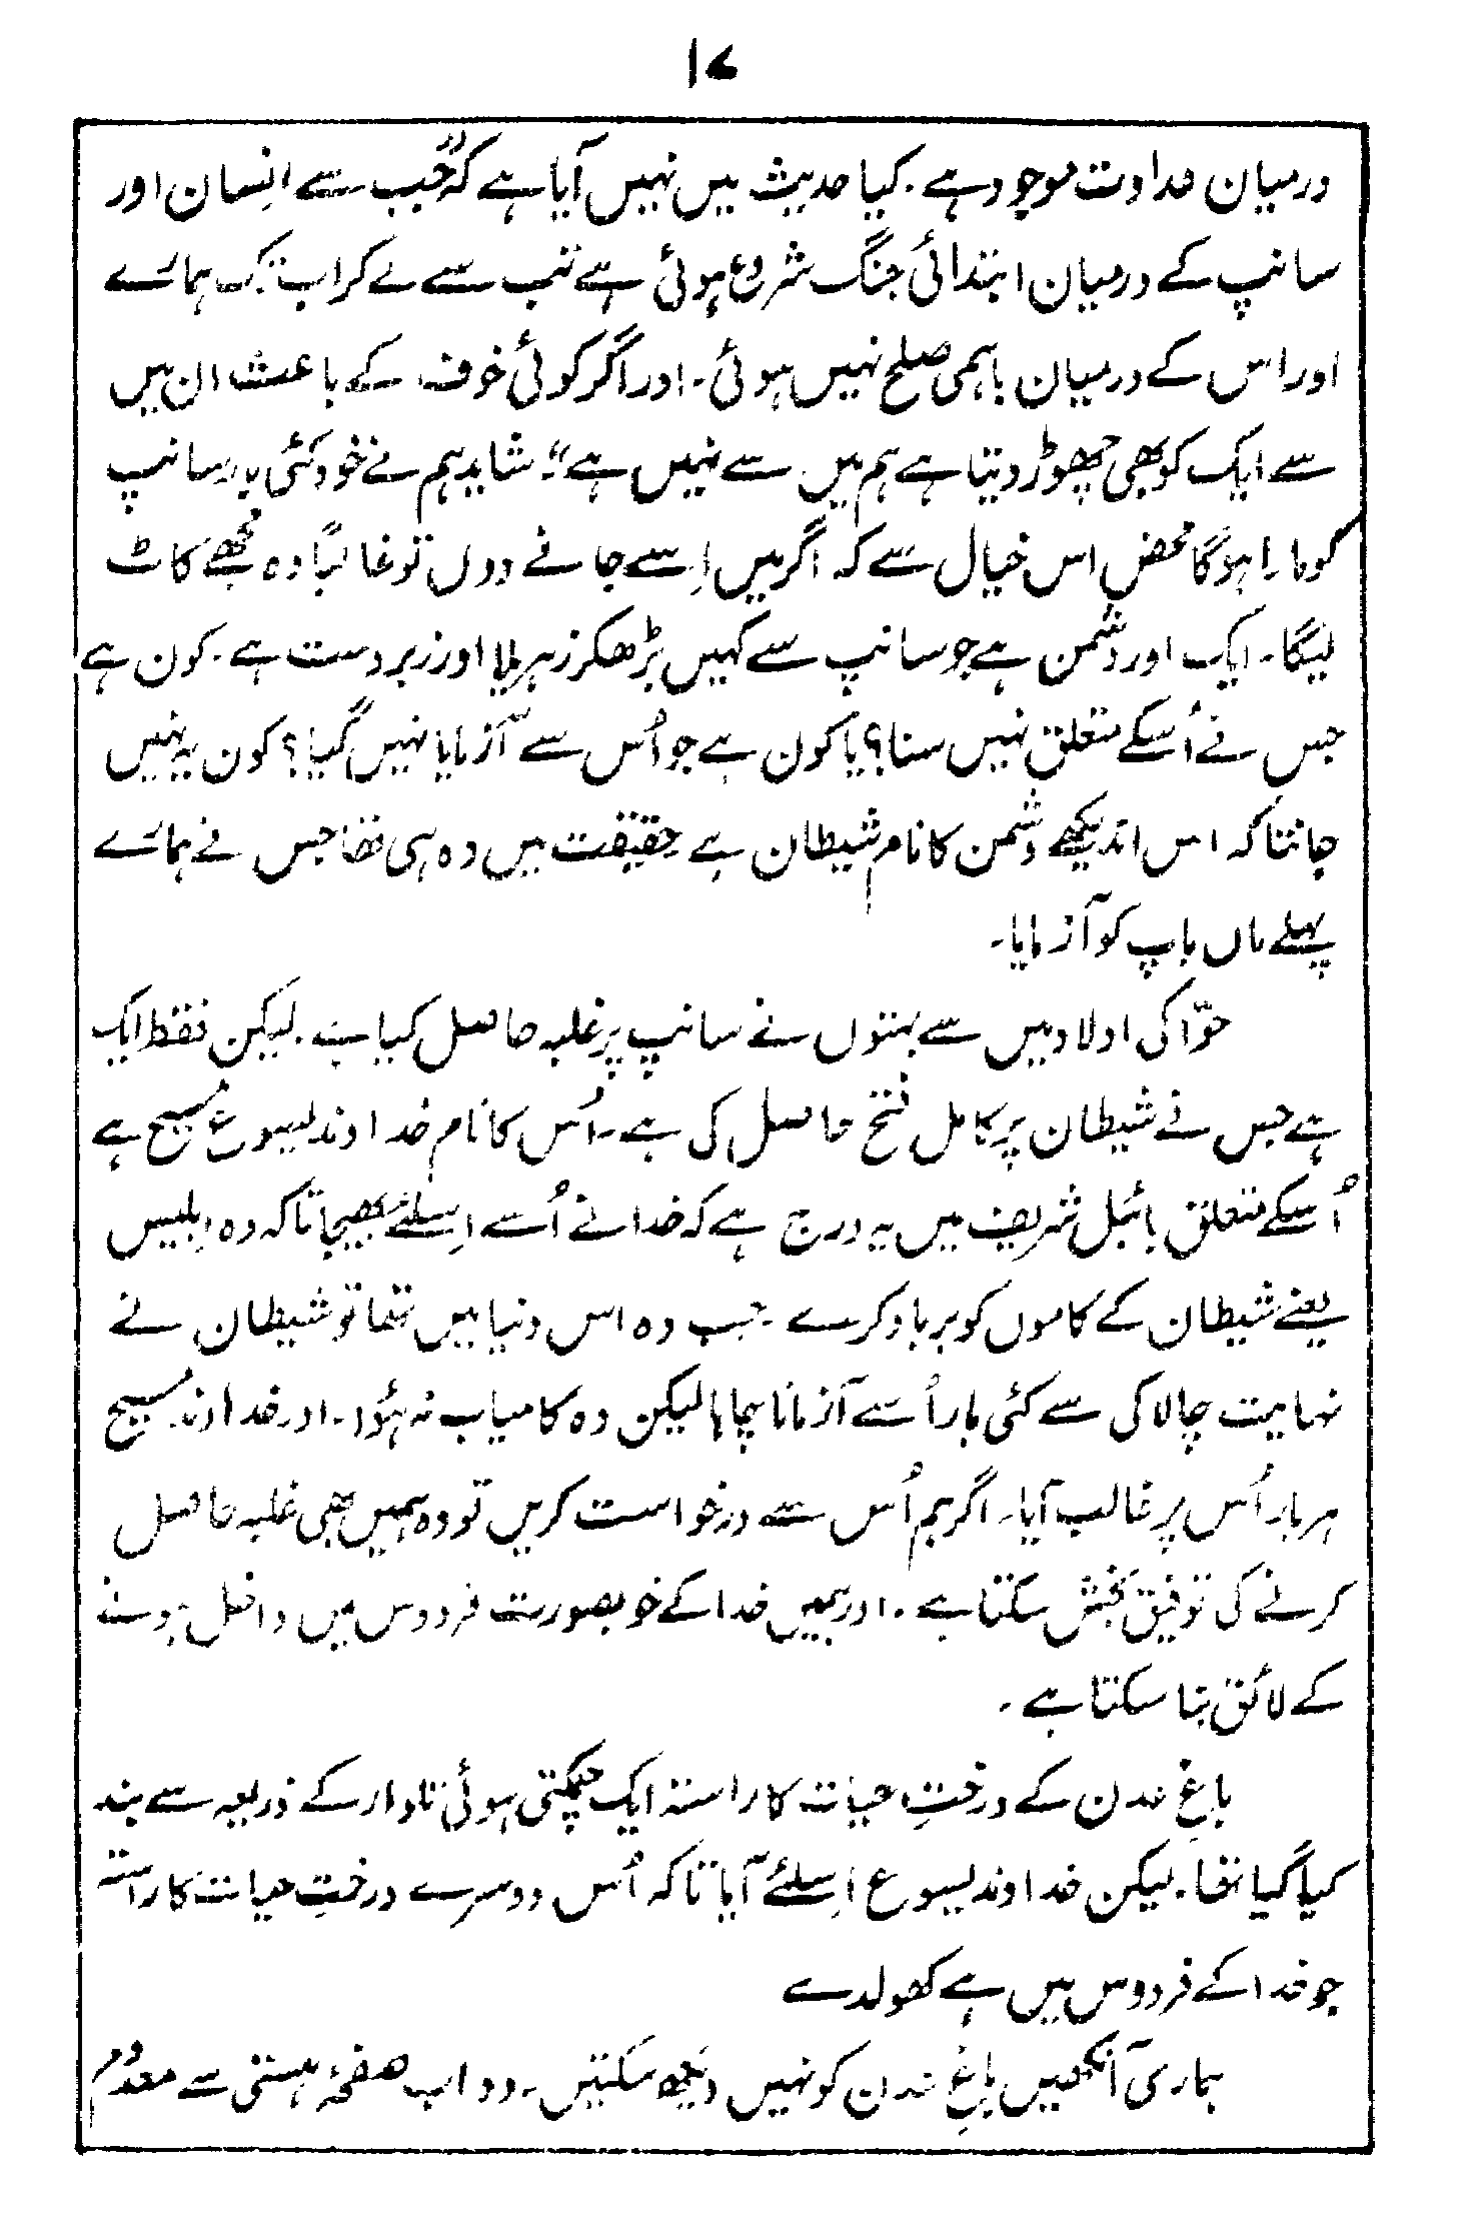 ۱۷
درمیان عداوت موجود ہے۔ کیا حدیث میں نہیں آیا ہے کہ "جب سے انسان اور
سانپ کے درمیان ابتدائی جنگ شروع ہوئی ہے تب سے لے کر اب تک ہمارے
اور اس کے درمیان باہمی صلح نہیں ہوئی۔ اور اگر کوئی خوف کے باعث ان میں
سے ایک کو بھی چھوڑ دیتا ہے ہم میں سے نہیں ہے"۔ شاید ہم نے خود کئی بار سانپ
کو مارا ہوگا محض اس خیال سے کہ اگر میں اِسے جانے دوں تو غالباً وہ مجھے کاٹ
لیگا۔ ایک اور دشمن ہے جو سانپ سے کہیں بڑھکر زہریلا اور زبردست ہے۔ کون ہے
جس نے اُسکے متعلق نہیں سنا؟ یا کون ہے جو اُس سے آزمایا نہیں گیا؟ کون یہ نہیں
جانتا کہ اس اندیکھے دشمن کا نام شیطان ہے حقیقت میں وہ ہی تھا جس نے ہمارے
پہلے ماں باپ کو آزمایا۔
حوّا کی اولاد میں سے بہتوں نے سانپ پر غلبہ حاصل کیا ہے۔ لیکن فقط ایک
ہے جس نے شیطان پر کامل فتح حاصل کی ہے۔ اُس کا نام خداوند یسوع مسیح ہے
اُسکے متعلق بائبل شریف میں یہ درج ہے کہ خدا نے اُسے اِسلئے بھیجا تاکہ وہ اِبلیس
یعنے شیطان کے کاموں کو برباد کرے۔ جب وہ اس دنیا میں تھا تو شیطان نے
نہایت چالاکی سے کئی بار اُسے آزمانا چاہا لیکن وہ کامیاب نہ ہُوا۔ اور خداوند مسیح
ہر بار اُس پر غالب آیا۔ اگر ہم اُس سے درخواست کریں تو وہ ہمیں بھی غلبہ حاصل
کرنے کی توفیق بخش سکتا ہے۔ اور ہمیں خدا کے خوبصورت فردوس میں داخل ہونے
کے لائق بنا سکتا ہے۔
باغِ عدن کے درختِ حیات کا راستہ ایک چمکتی ہوئی تلوار کے ذریعہ سے بند
کیا گیا تھا۔ لیکن خداوند یسوع اِسلئے آیا تاکہ اُس دوسرے درختِ حیات کا راستہ
جو خدا کے فردوس میں ہے کھولدے
ہماری آنکھیں باغِ عدن کو نہیں دیکھ سکتیں۔ وہ اب صفحۂ ہستی سے معدُوم